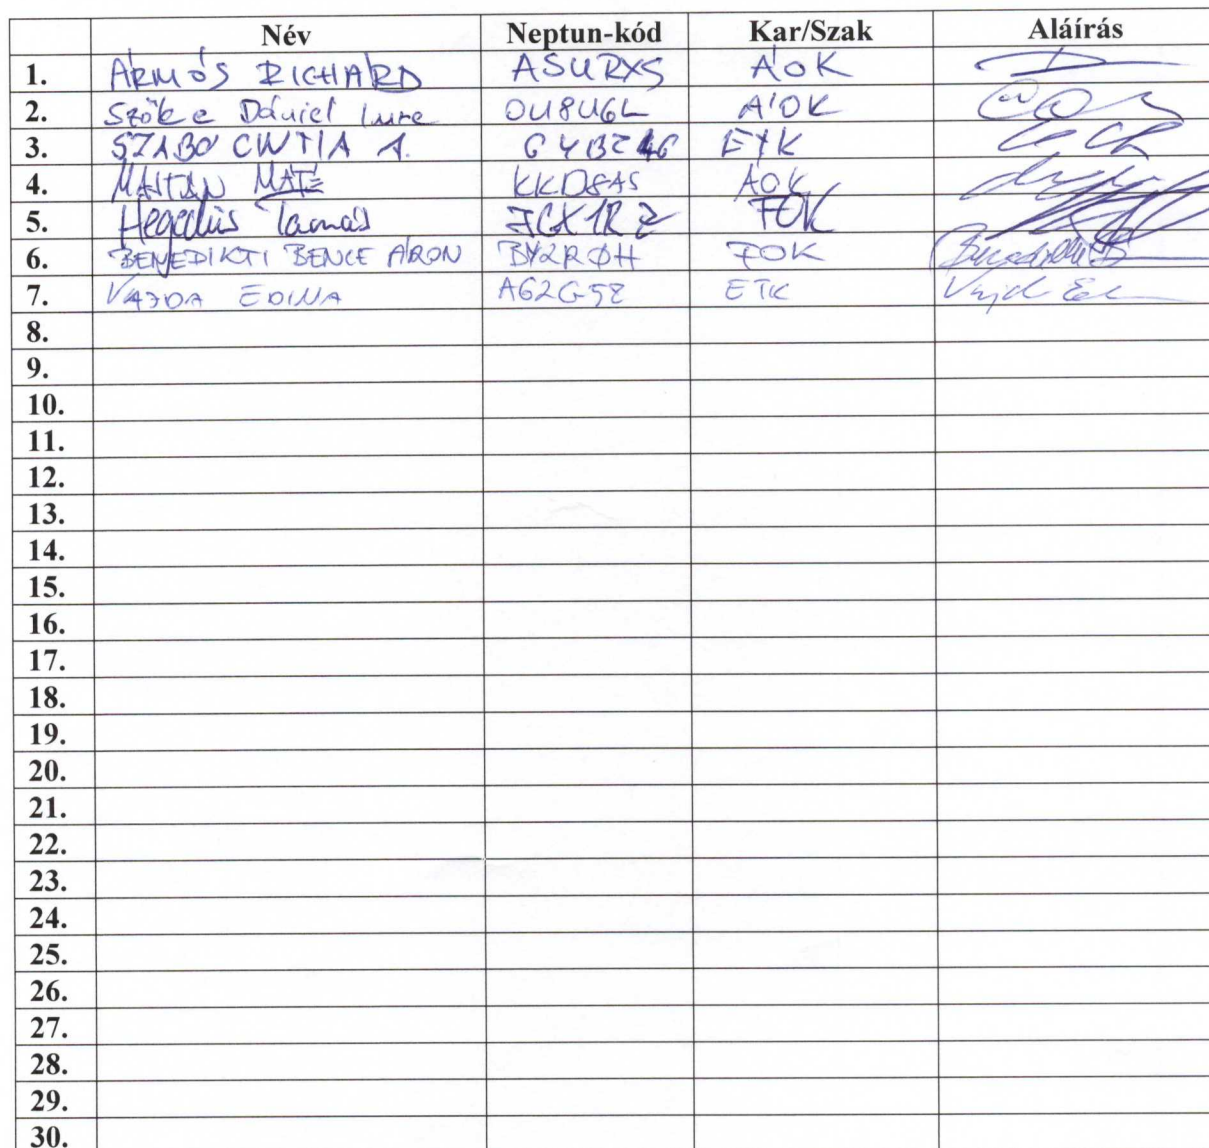 Név Neptun-kód Kar/Szak Aláírás
1. ÁRMÓS RICHÁRD ASURXS ÁOK
2. Szőke Dániel Imre OU8U6L ÁOK
3. SZABÓ CINTIA A. ETK
4. MAJTÁN MÁTÉ KKD8AS ÁOK
5. Hegedűs Tamás FOK
6. BENEDIKTI BENCE ÁRON BY2RØH FOK
7. VAJDA EDINA AG2G5Z ETK
8.
9.
10.
11.
12.
13.
14.
15.
16.
17.
18.
19.
20.
21.
22.
23.
24.
25.
26.
27.
28.
29.
30.